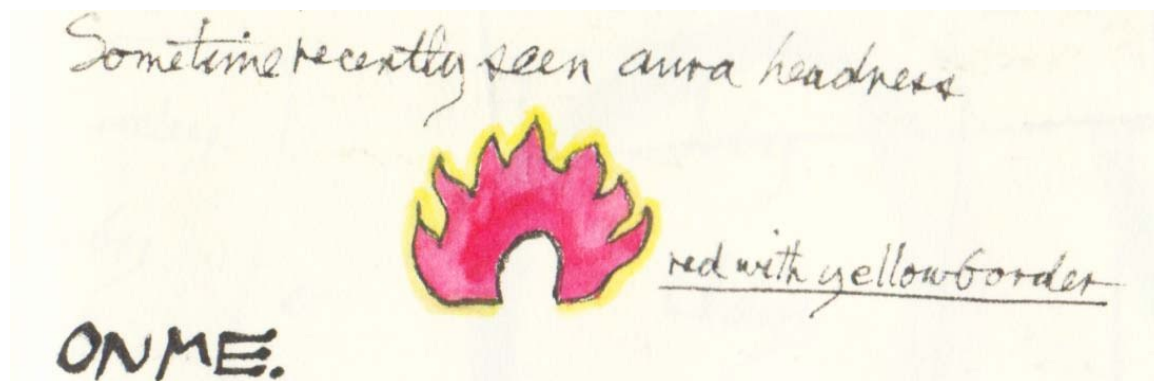 Sometime recently seen aura headress
red with yellow border
ON ME.